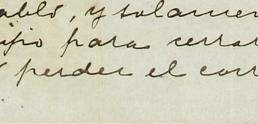 ablo, y solamen
ijo para cerrar
perder el corr